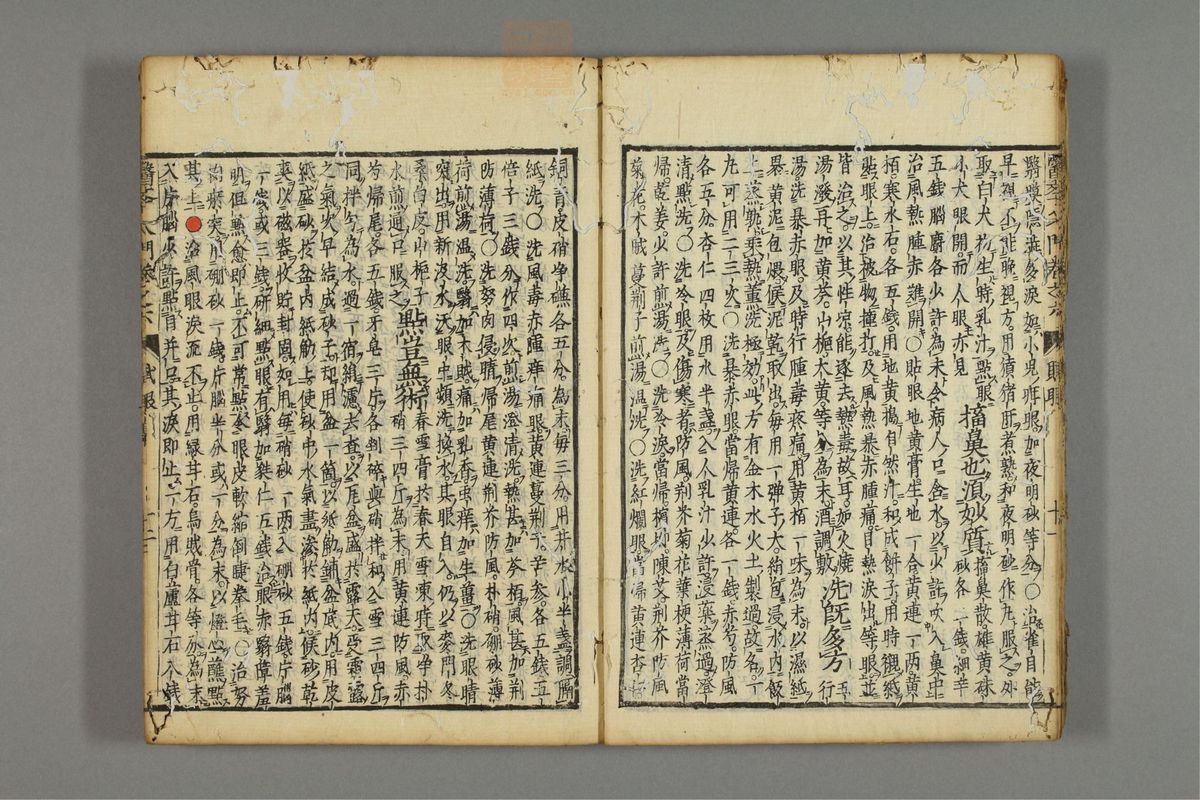 早視不能晚視方用獖猪肝煮熟和夜明砂作丸服之外
取白犬初生時乳汁點眼 搐鼻也須妙質 搐鼻散雄黃硃
小犬眼開而人眼亦見
五錢腦麝各少許為末令病人口含水以少許吹入鼻中
治風熱腫赤難開〇貼眼地黃膏生地一合黃連一兩黃
栢寒水石各五錢用地黃搗自然汁和成餅子用時襯紙
貼眼上治被物撞打及風熱暴赤腫痛目熱淚出等眼並
皆治之以其性宛能逐去熱毒故耳如火燒
湯潑再加黃芩山梔大黃等分為末酒調敷 洗既多方 行
湯洗暴赤眼及時行腫毒疼痛用黃栢一味為末以濕紙
裹黃泥包煨候泥乾取出每用一彈子大紗包浸水內飯
上蒸熟乘熱薰洗極効此方有金木水火土制過故名〇
九可用二三次〇洗暴赤眼當帰黃連各一錢赤芍防風
各五分杏仁四枚用水半盞入人乳汁少許浸藥蒸過澄
清點洗〇洗冷眼及傷寒者防風荆芥菊花葉梗薄荷當
帰乾姜少許煎湯洗〇洗冷淚當帰檳榔陳艾荆芥防風
菊花木賊蔓荊子煎湯温洗〇洗紅爛眼當帰黃連杏仁
銅青皮硝各五分為末每三分用井水小半盞調
紙洗〇洗風毒赤腫痒痛眼黃連蔓荊子辛參各五錢五
倍子三錢分作四次煎湯澄清洗熱甚加芩栢風甚加荆
防薄荷〇洗努肉侵睛帰尾黃連荆芥防風朴硝硼砂薄
荷煎湯温洗翳加木賊痛加乳香虫痒加生薑〇洗眼睛
突出用新汲水沃眼中頻洗換水其眼自入仍以麥門冬
桑白皮山梔子
水煎通口服之 點豈無術 春雪膏於春天雪凍時取
硝三四斤為末用黃連防風赤
芍帰尾各五錢牙皂三斤各剉碎與硝拌和入雪三四斤
同拌匀為水過一宿絹濾去査以瓦盆盛於露天受霜露
之氣火早結成砂子却用盆一箇以紙觔鋪盆底內用皮
紙盛砂於盆內紙觔上使砂中水氣盡滲於紙內候砂乾
爽以磁器收貯封固如用每硝砂一兩入硼砂五錢片腦
一字或二錢研細點眼有翳加㽔仁五錢治眼赤翳障羞
明但點愈即止不可常點令眼皮軟縮倒睫拳毛〇治努
肉泰突用硼砂一錢片腦半分或一分為末以燈心蘸點
其上〇治風眼淚流不止用爐甘石烏賊骨各等分為末
入片腦少許點目并口其淚即止一方用白爐甘石入錢